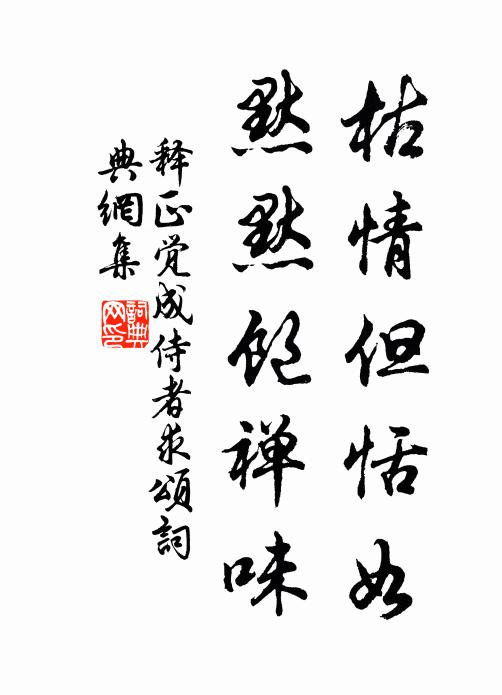 枯情但恬如
默默飽禅味
释正觉成侍者求頌詞
典網集
詞典
网印